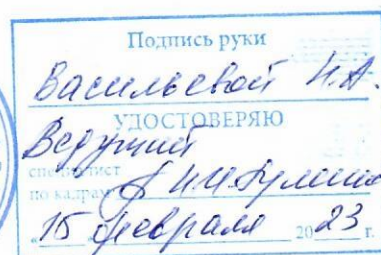 Подпись руки
Васильевой Н.А.
УДОСТОВЕРЯЮ
Ведущий
специалист
по кадрам
"15 февраля 2023 г.